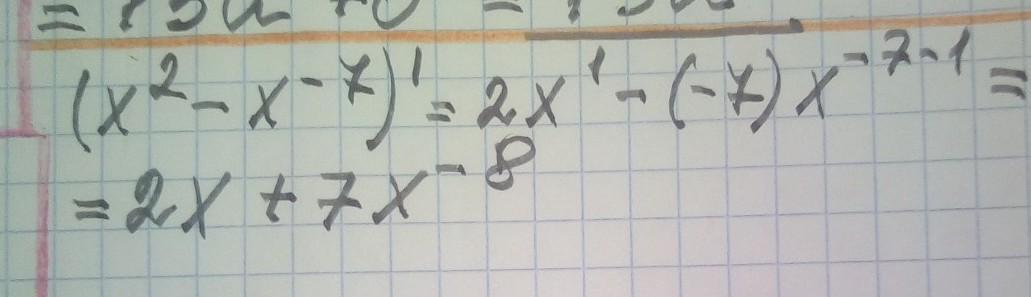 (x² - x⁻⁷)' = 2x¹ - (-7)x⁻⁷⁻¹ =
= 2x + 7x⁻⁸